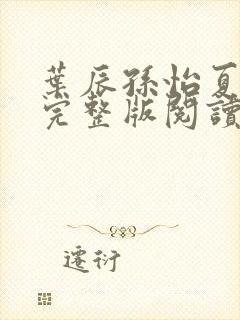 葉辰孫怡夏
完整版閱讀
遷衍